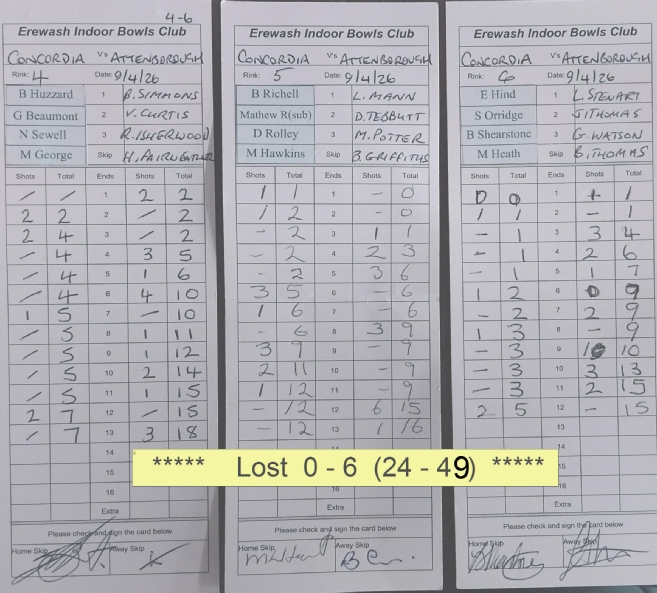 4-6
Erewash Indoor Bowls Club
CONCORDIA Vs ATTENBOROUGH
Rink: 4 Date: 9/4/26
B Huzzard 1 B.SIMMONS
G Beaumont 2 V.CURTIS
N Sewell 3 R.ISHERWOOD
M George Skip H.FAIRWEATHER
Shots Total Ends Shots Total
/ / 1 2 2
2 2 2 / 2
2 4 3 / 2
/ 4 4 3 5
/ 4 5 1 6
/ 4 6 4 10
1 5 7 - 10
/ 5 8 1 11
/ 5 9 1 12
/ 5 10 2 14
/ 5 11 1 15
2 7 12 / 15
/ 7 13 3 18
14
15
16
Extra
Please check and sign the card below
Home Skip Away Skip
Erewash Indoor Bowls Club
CONCORDIA Vs ATTENBOROUGH
Rink: 5 Date: 9/4/26
B Richell 1 L.MANN
Mathew R(sub) 2 D.TEBBUTT
D Rolley 3 M.POTTER
M Hawkins Skip B.GRIFFITHS
Shots Total Ends Shots Total
1 1 1 - 0
1 2 2 - 0
- 2 3 1 1
- 2 4 2 3
- 2 5 3 6
3 5 6 - 6
1 6 7 - 6
- 6 8 3 9
3 9 9 - 9
2 11 10 - 9
1 12 11 - 9
- 12 12 6 15
- 12 13 1 16
16
Extra
Please check and sign the card below
Home Skip Away Skip
Erewash Indoor Bowls Club
CONCORDIA Vs ATTENBOROUGH
Rink: 6 Date: 9/4/26
E Hind 1 L.STEWART
S Orridge 2 J.THOMAS
B Shearstone 3 G.WATSON
M Heath Skip B.THOMAS
Shots Total Ends Shots Total
0 0 1 1 1
1 1 2 - 1
- 1 3 3 4
- 1 4 2 6
- 1 5 1 7
1 2 6 9
- 2 7 2 9
1 3 8 - 9
- 3 9 1 10
- 3 10 3 13
- 3 11 2 15
2 5 12 - 15
13
14
15
16
Extra
Please check and sign the card below
Home Skip Away Skip
***** Lost 0 - 6 (24 - 49) *****